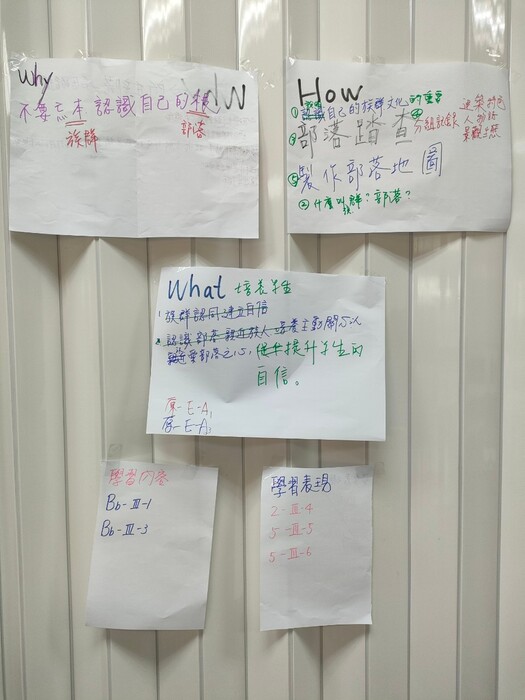 Why
不要亡本 認識自己的根
族群
部落
How
① 認識自己的族群文化的重要
③ 部落踏查 ④ 分組記錄
建築特色
人
景觀生態
⑤ 製作部落地圖
② 什麼叫族群？部落？
What 培養學生
1. 族群認同 建立自信
2. 認識部落 親近族人 培養主動關心以
愛部落之心, 提升學生的
自信。
原-E-A1
原-E-A1
學習內容
Bb-Ⅲ-1
Bb-Ⅲ-3
學習表現
2-Ⅲ-4
5-Ⅲ-5
5-Ⅲ-6